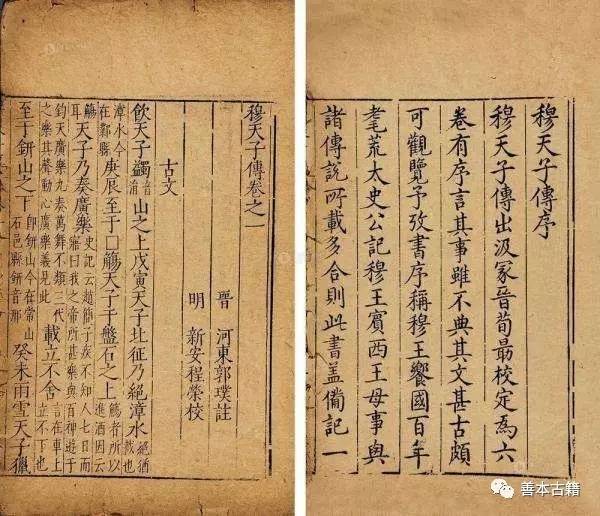 穆天子傳序
穆天子傳出汲冢晉荀最校定為六
卷有序言其事雖不典其文甚古頗
可觀覽予攷書序稱穆王饗國百年
耄荒太史公記穆王賓西王母事與
諸傳說所載多合則此書蓋備記一
穆天子傳卷之一
晉 河東郭璞註
明 新安程榮校
古文
飲天子蠲音涓山之上戊寅天子北征乃絕漳水絕猶截也
漳水今在鄴縣庚辰至于□觴天子于盤石之上觴者所以進酒因云
觴耳天子乃奏廣樂史記云趙簡子疾不知人七日而寤曰我之帝所甚樂與百神遊于
鈞天廣樂九奏萬舞不類三代之樂其聲動心廣樂義見此載立不舍言在車上立不下也
至于鈃山之下即鈃山今在常山石邑縣鈃音邢癸未雨雪天子獵
善本古籍